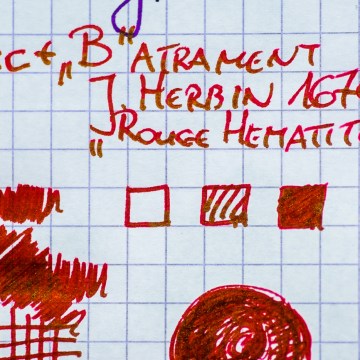 ct „B" ATRAMENT
J. HERBIN 1670
„ROUGE HEMATITE